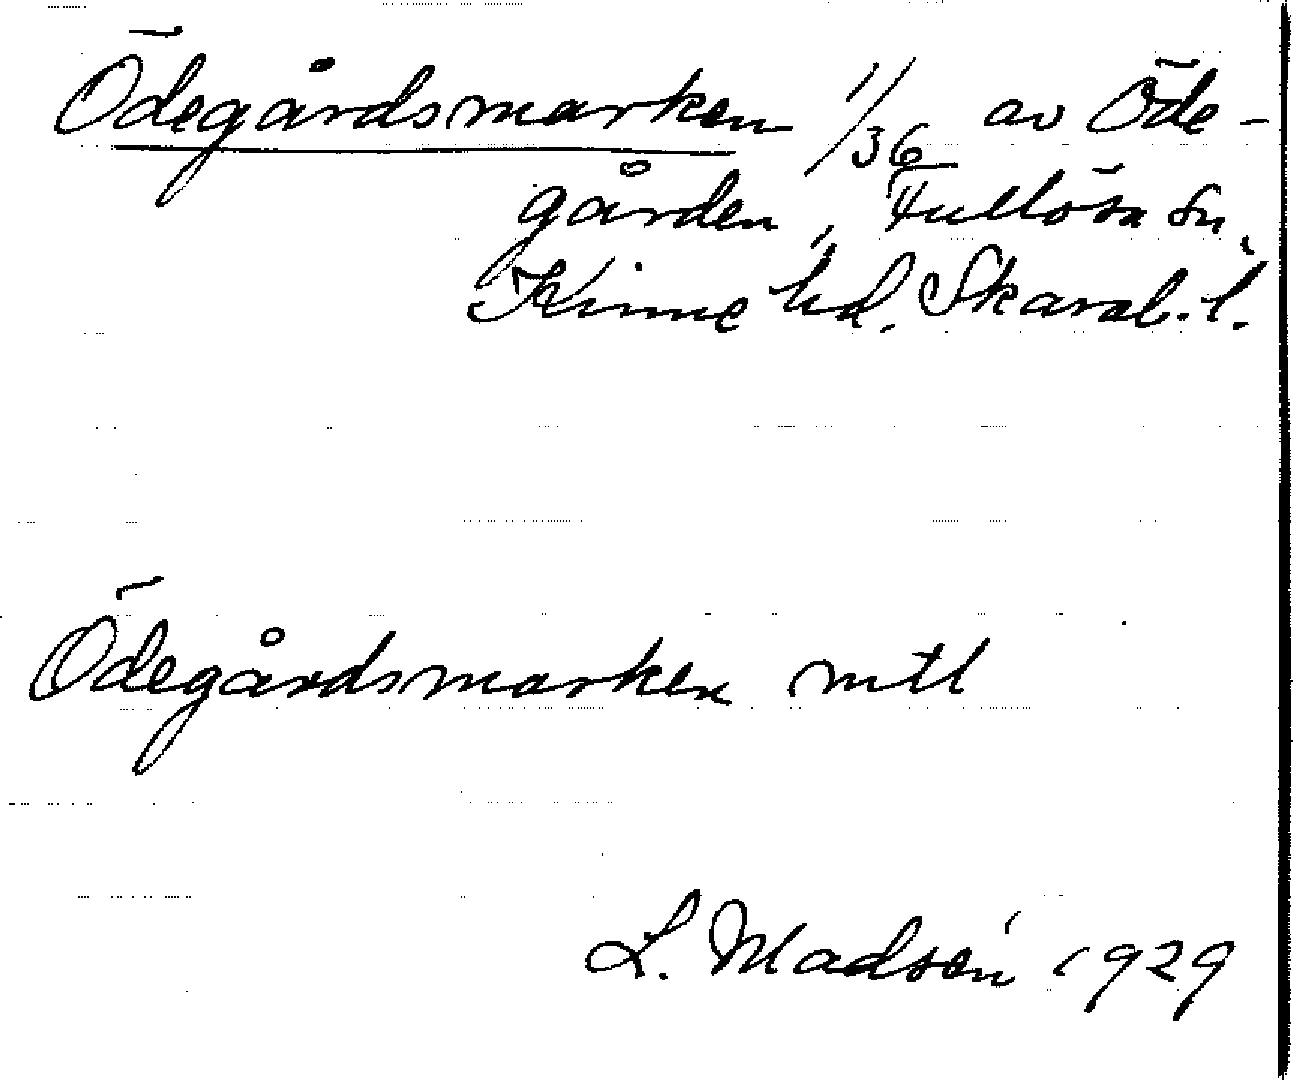 Ödegårdsmarken 1/36 av Öde-
gården, Fullösa sn,
Kinne hd. Skarab. l.
Ödegårdsmarken mtl
L. Madsén 1929